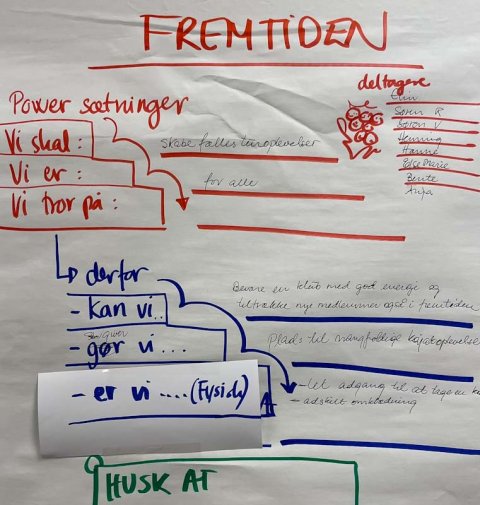 FREMTIDEN
deltagere
Elin
Søren R
Søren V
Henning
Hanne
Else Marie
Bente
Anja
Power sætninger
Vi skal :
Vi er :
Vi tror på :
Skabe fælles turoplevelser
for alle
derfor
- kan vi..
- gør vi ...
- er vi .... (Fysisk)
Bevare en klub med god energi og
tiltrække nye medlemmer også i fremtiden
Plads til mangfoldige kajakoplevelser
- let adgang til at tage en
- adskilt omklædning
HUSK AT